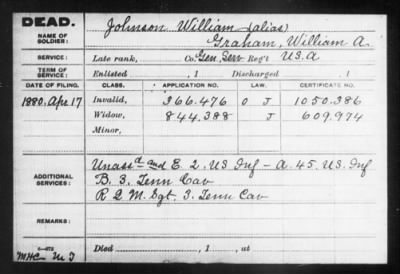 DEAD.
NAME OF SOLDIER: Johnson William (alias)
Graham, William A.
SERVICE: Late rank, Co. Gen, Serv Reg't U.S.A
TERM OF SERVICE: Enlisted , 1 Discharged , 1
DATE OF FILING. CLASS. APPLICATION NO. LAW. CERTIFICATE NO.
1880, Apr 17 Invalid, 366.476 O J 1050.386
Widow, 844.388 J 609.974
Minor,
ADDITIONAL SERVICES: Unass'd and E. 2. US Inf - A. 45. US. Inf
B. 3. Tenn Cav
R Q M. Sgt. 3. Tenn Cav
REMARKS:
Died , 1 , at